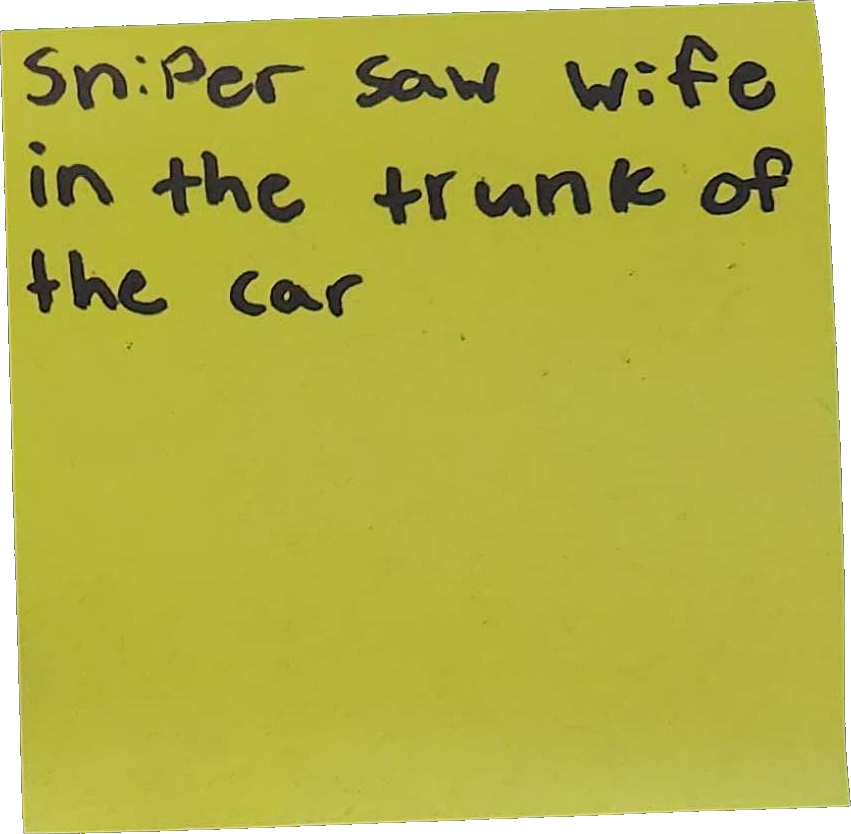 Sniper saw wife
in the trunk of
the car